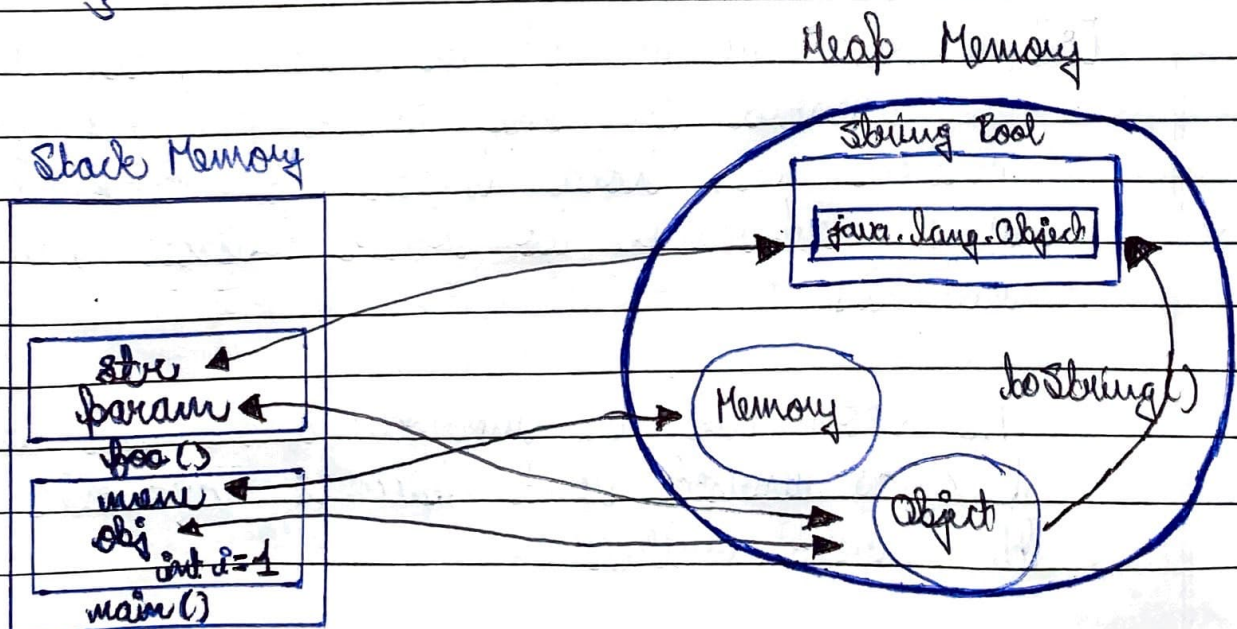 Heap Memory
Stack Memory
String Pool
java.lang.Object
str
param
foo()
mem
obj
int i=1
main()
Memory
Object
toString()